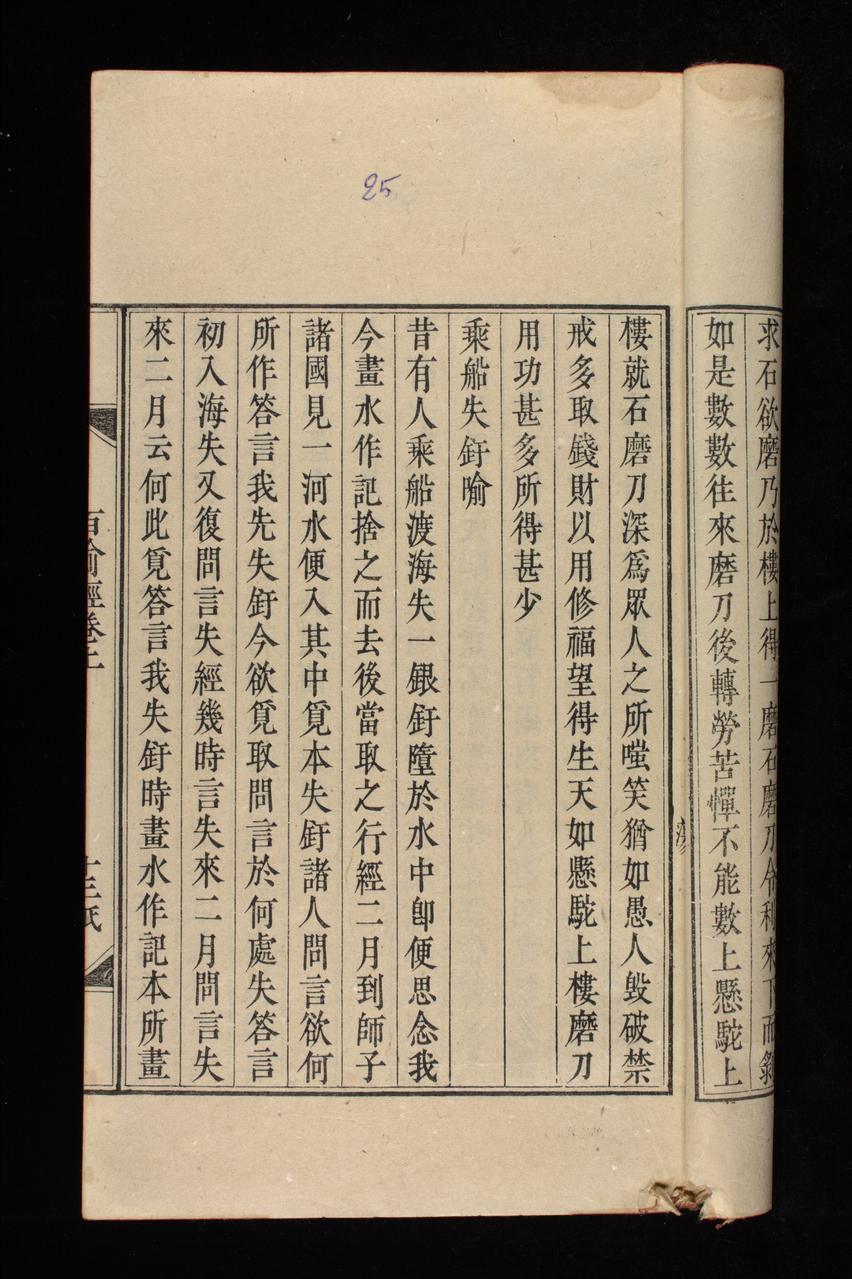 25
求石欲磨乃於樓上得一磨石磨刀令利來下而剝
如是數數往來磨刀後轉勞苦憚不能數上懸駝上
樓就石磨刀深爲眾人之所嗤笑猶如愚人毀破禁
戒多取錢財以用修福望得生天如懸駝上樓磨刀
用功甚多所得甚少
乘船失釪喻
昔有人乘船渡海失一銀釪墮於水中卽便思念我
今畫水作記捨之而去後當取之行經二月到師子
諸國見一河水便入其中覓本失釪諸人問言欲何
所作答言我先失釪今欲覓取問言於何處失答言
初入海失又復問言失經幾時言失來二月問言失
來二月云何此覓答言我失釪時畫水作記本所畫
百喻經卷上
十三